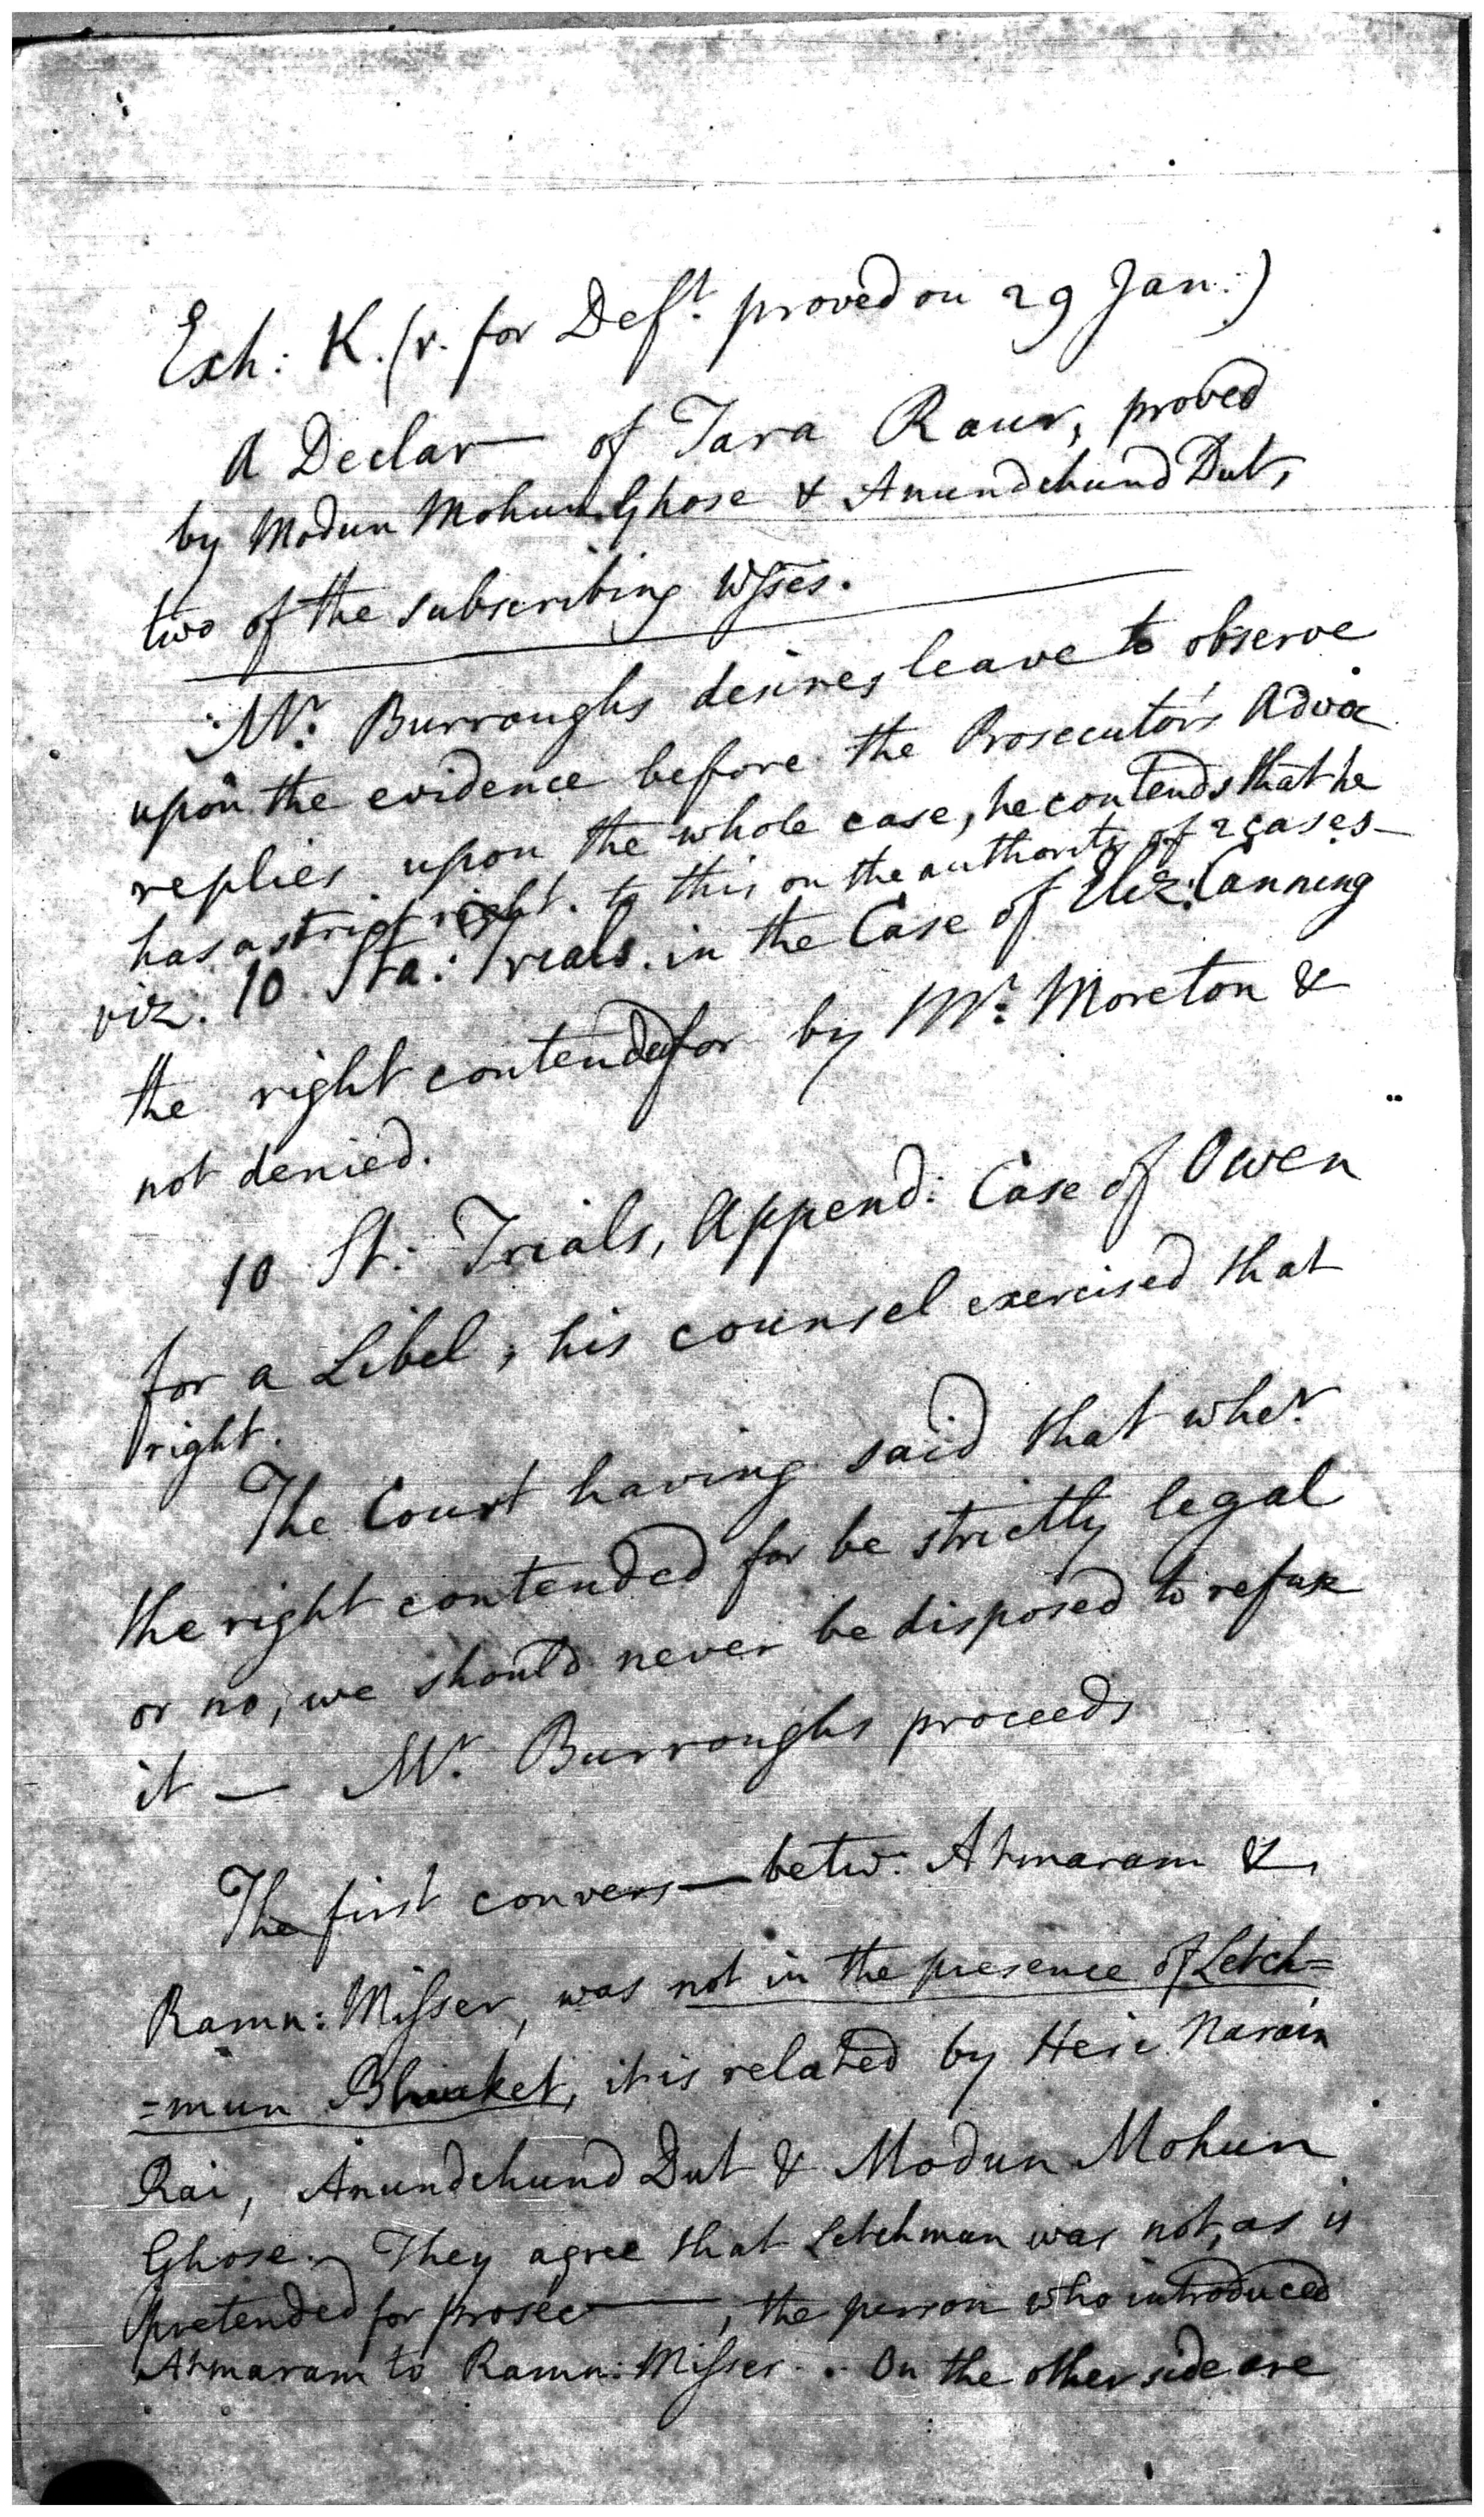 Exh: K. (r. for Deft. proved on 29 Jan:)
A Declar— of Tara Raur, proved
by Modun Mohun Ghose & Anundchund Dut,
two of the subscribing Wsses.
Mr. Burroughs desires leave to observe
upon the evidence before the Prosecutor's Advoc
replies upon the whole case, he contends that he
has a strict right to this on the authority of 2 cases—
viz. 10 Sta: Trials. in the Case of Eliz: Canning
the right contended for by Mr. Moreton &
not denied.
10 St: Trials, Append: Case of Owen
for a Libel, his counsel exercised that
right.
The Court having said that wher
the right contended for be strictly legal
or no, we should never be disposed to refuse
it — Mr. Burroughs proceeds
The first convers— betw: Atmaram &
Ramn: Misser, was not in the presence of Letch=
=mun, it is related by Heir Narain
Rai, Anundchund Dut & Modun Mohun
Ghose. They agree that Letchman was not, as is
pretended for prosec—, the person who introduced
Atmaram to Ramn: Misser. On the other side are